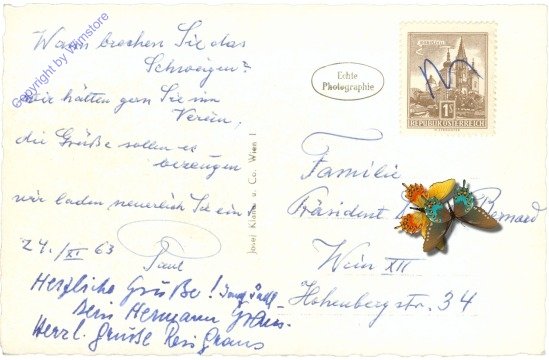 Wann brechen Sie das
Schweigen?
wir hätten gern Sie im
Verein,
die Grüße sollen es
bezeugen
wir laden neuerlich Sie ein!
24./XI 63
Paul
Herzliche Grüße!
Dein Hermann
Herzl. Grüße Resi
Copyright by Wimstore
Echte
Photographie
Josef Kiana u. Co. Wien I
MARIAZELL
1S
REPUBLIK ÖSTERREICH
Familie
Präsident Bernard
Wien XII
Hohenbergstr. 34